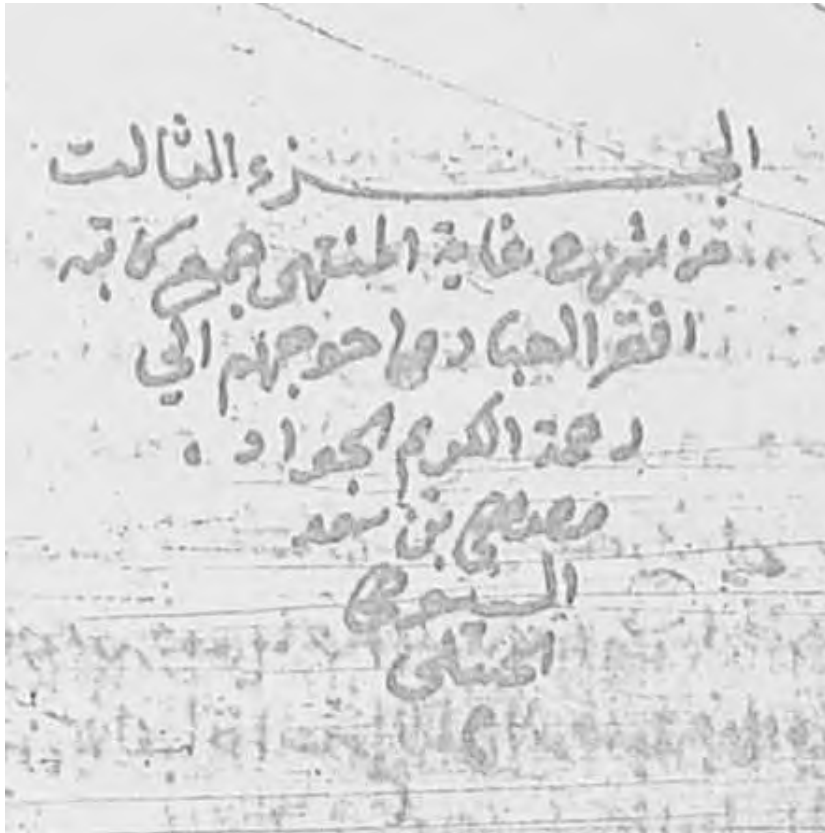 الجزء الثالث
من شرح غاية المنتهى جمع كاتبه
افقر العباد واحوجهم الي
رحمة الكريم الجواد .
مصطفى بن سعد
السيوطي
الحنبلي